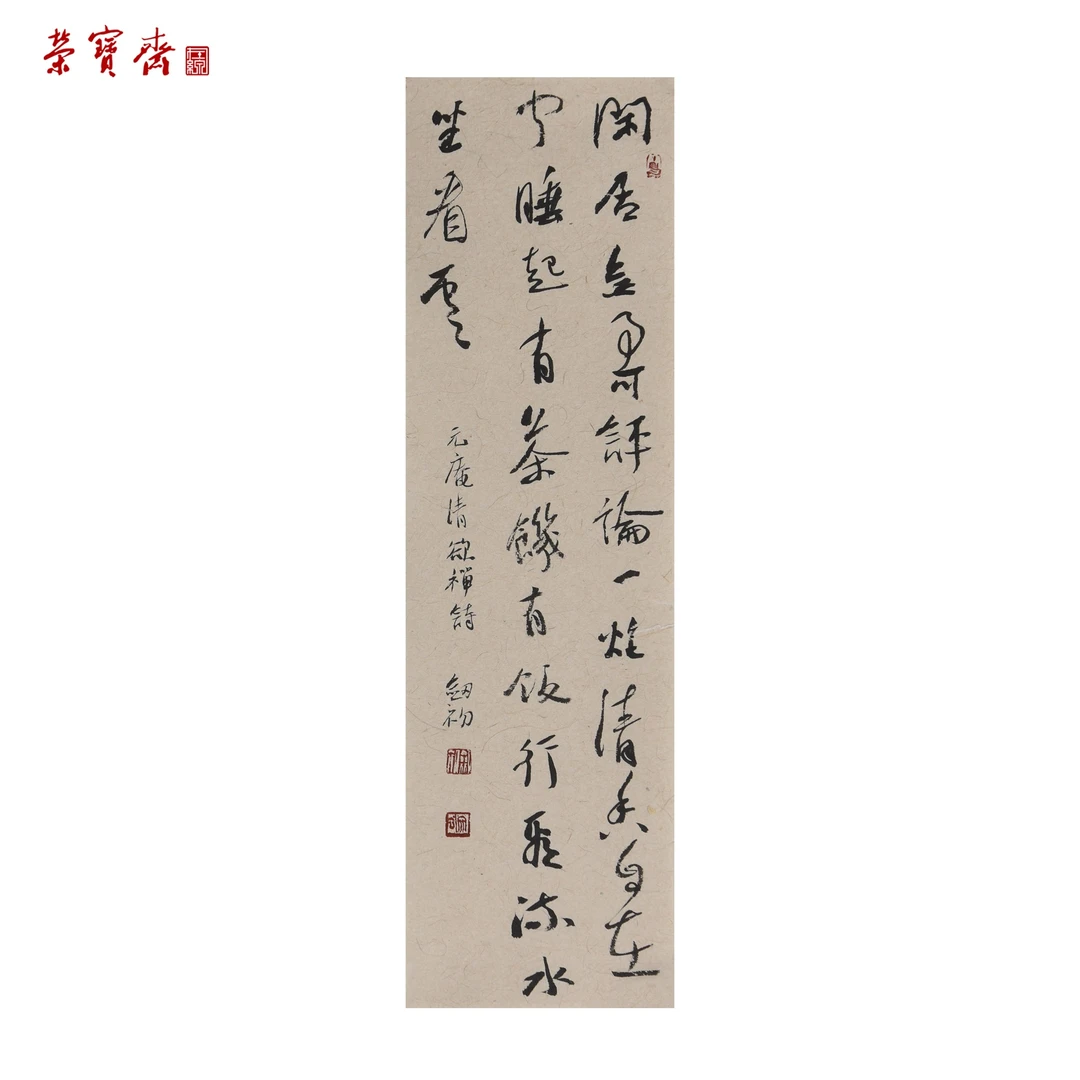 榮寶齋
閑居無事可評論一炷清香自在
聞睡起有茶饑有飯行聽流水
坐看雲
元庵清欲禪詩
劍初